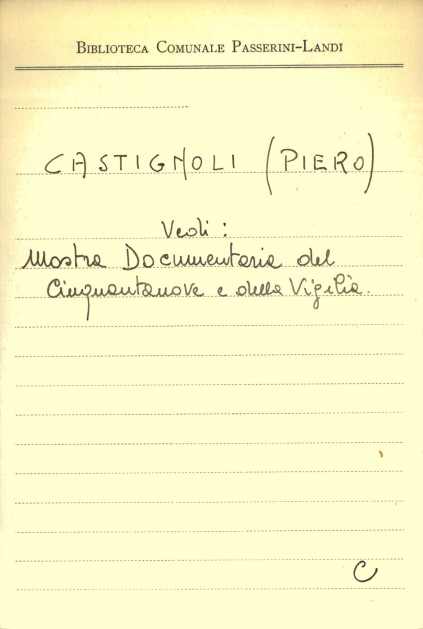 Biblioteca Comunale Passerini-Landi
CASTIGNOLI (PIERO)
Vedi:
Mostra Documentaria del
Cinquantanove e della Vigilia.
C